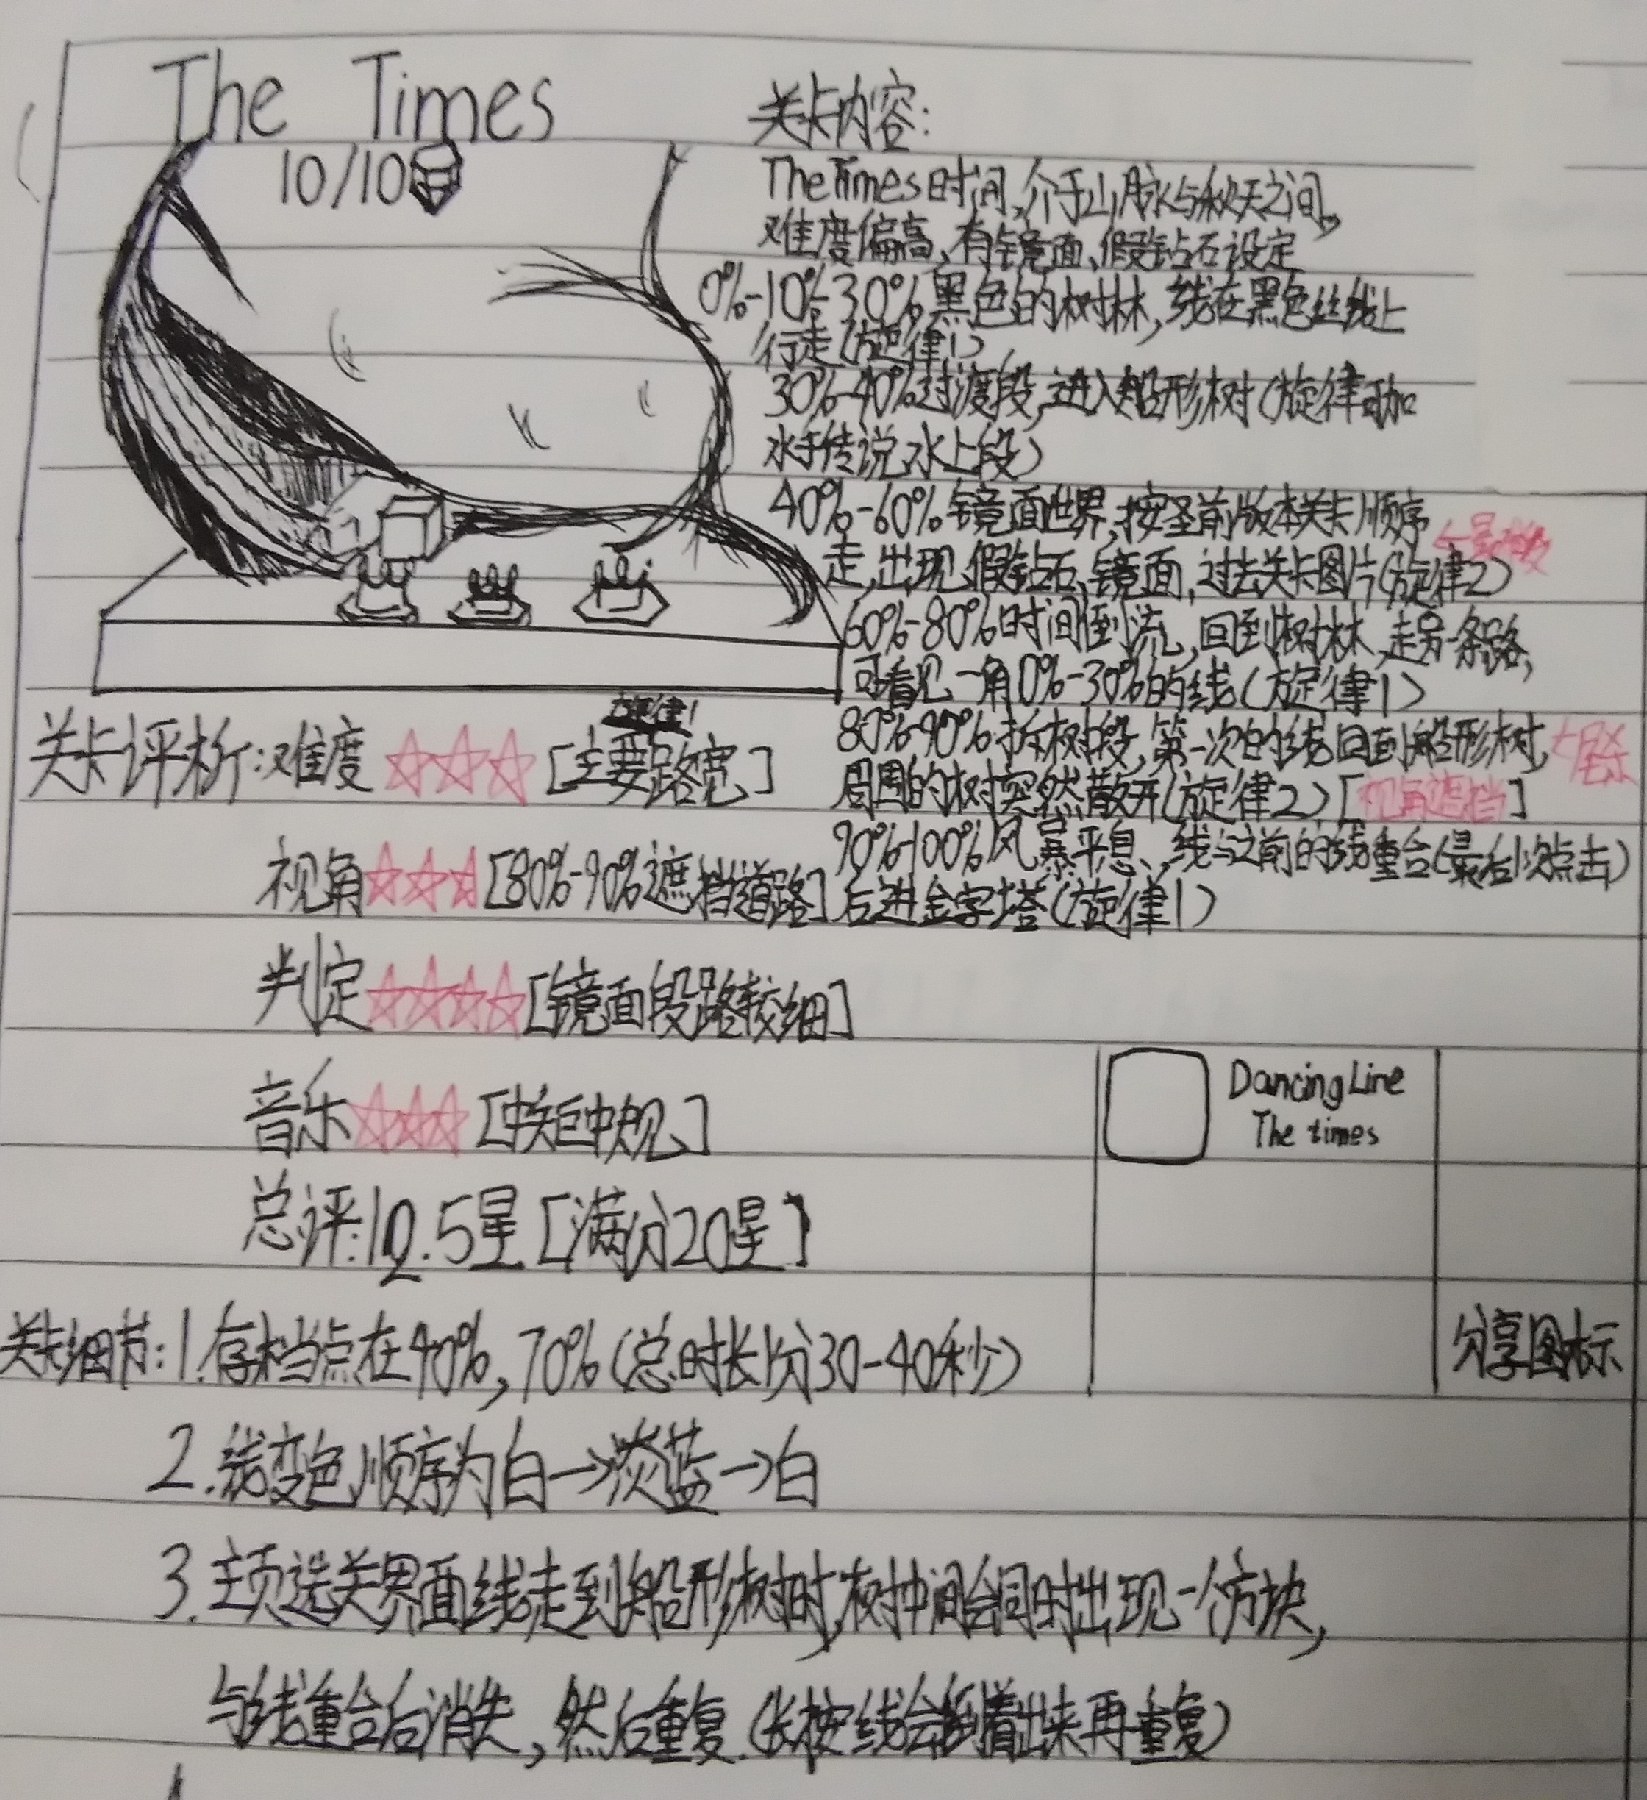 The Times
10/10
关卡内容:
The Times时间,介于山脉与秋天之间。
难度偏高、有镜面、假钻石设定
0%-10%-30%黑色的树林,线在黑色丝线上
行走(旋律1)
30%-40%过渡段,进入船形树(旋律1加
水手传说水上段)
40%-60%镜面世界,按圣前版本关卡顺序
走,出现假钻石、镜面,过去关卡图片(旋律2)
60%-80%时间倒流,回到树林,走另一条路,
可看见一角0%-30%的线(旋律1)
80%-90%拆树段,第一次的线回到船形树,
周围的树突然散开(旋律2)[视角遮挡]
90%-100%风暴平息、线与之前的线重合(最后1次点击)
后进金字塔(旋律1)
旋律1
关卡评析:难度☆☆☆[主要路宽]
视角☆☆☆[80%-90%遮挡道路]
判定☆☆☆☆[镜面段路较细]
音乐☆☆☆[中矩中规]
总评:12.5星[满分20星]
Dancing Line
The times
分享图标
关卡细节:1.存档点在40%,70%(总时长1分30-40秒)
2.线变色顺序为白→淡蓝→白
3.主页选关界面线走到船形树时,树中间会同时出现一个方块,
与线重合后消失,然后重复.(长按线会倒着出来再重复)